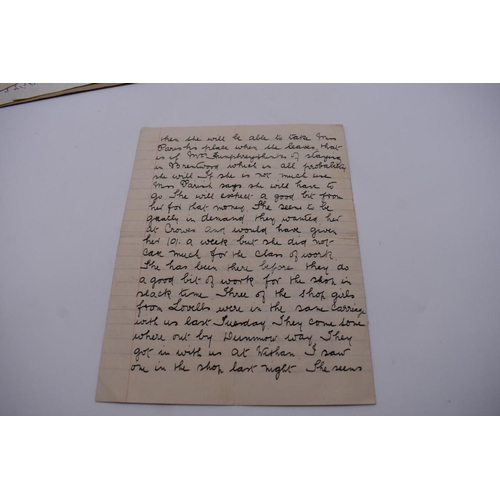 then she will be able to take Mrs
Parish's place when she leaves, that
is if Mrs Humphreys thinks of staying
in Brentwood which in all probability
she will. If she is not much use
Mrs Parish says she will have to
go. She will expect a good bit from
her for that money. She seems to be
greatly in demand. they wanted her
at Crowes and would have given
her 10/. a week but she did not
care much for the class of work.
She has been there before they do
a good bit of work for the shop in
slack time. Three of the shop girls
from Lovells were in the same carriage
with us last Tuesday. They come some
where out by Dunmow way. They
got in with us at Witham. I saw
one in the shop last night. She seems